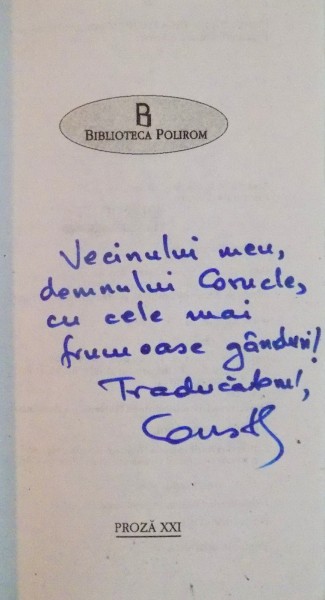 B
BIBLIOTECA POLIROM
Vecinului meu,
domnului Corucle,
cu cele mai
frumoase gânduri!
Traducătorul,
PROZĂ XXI